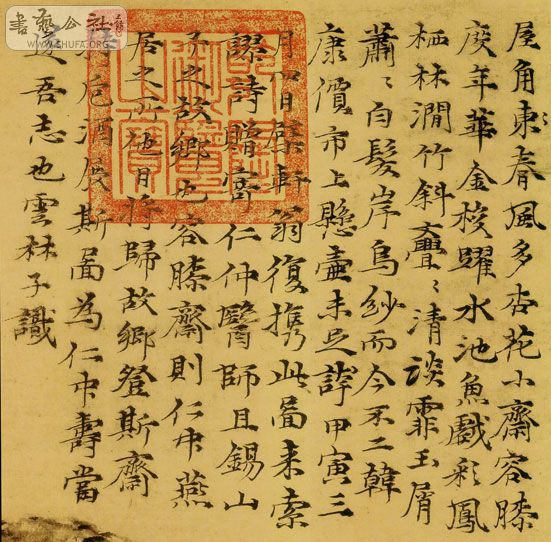 書藝公社
WWW.SHUFA.ORG
屋角東春風多杏花小齋容膝
度年華金梭躍水池魚戲彩鳳
栖林澗竹斜亹〻清談霏玉屑
蕭〻白髮岸烏紗而今不二韓
康價市上懸壺未足誇甲寅三
月四日檗軒翁復携此啚来索
謬詩贈寄仁仲醫師且錫山
予之故鄉也容膝齋則仁中燕
居之所他日將歸故鄉登斯齋
持卮酒展斯啚為仁中壽當
遂吾志也雲林子識